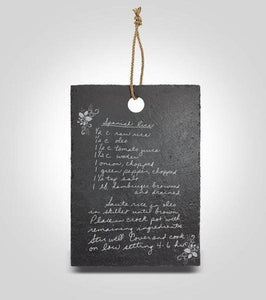 Spanish Rice
½ c. raw rice
½ c. oleo
1½ c. tomato juice
1½ c. water
1 onion, chopped
1 green pepper, chopped
1½ tsp salt
1 lb hamburger browned
and drained
Saute rice in oleo
in skillet until brown.
Place in crock pot with
remaining ingredients.
Stir well. Cover and cook
on low setting 4-6 hrs.